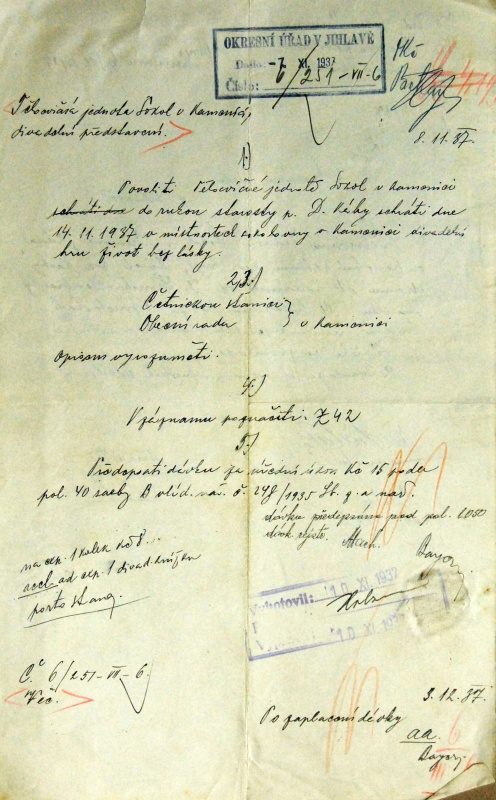 OKRESNÍ ÚŘAD V JIHLAVĚ
Došlo: -7. XI. 1937
Číslo: 6/251-VII-6
Tělocvičná jednota Sokol v Kamenici,
divadelní představení.
8. 11. 37.
1.)
Povoliti Tělocvičné jednotě Sokol v Kamenici
do rukou starosty p. D. sehráti dne
14. 11. 1937 v místnostech sokolovny v Kamenici divadelní
hru život bez lásky.
2,3.)
Četnickou stanici
Obecní radu } v Kamenici
opisem vyrozuměti.
4.)
V záznamu poznačiti: Z 42
5.)
Předepsati dávku za úřední úkon Kč 15 podle
pol. 40 sazby B vlád. nař. č. 248/1935 Sb. z. a nař.
dávka předepsána pod pol. 1050
dávk. rejstř.
na exp. 1 kolek Kč 8
ad exp. 1
porto
Vyhotovil: 10 XI. 1937
10 XI. 1937
Č. 6/251-VII-6.
Věc.
3. 12. 37.
Po zaplacení dávky
aa.